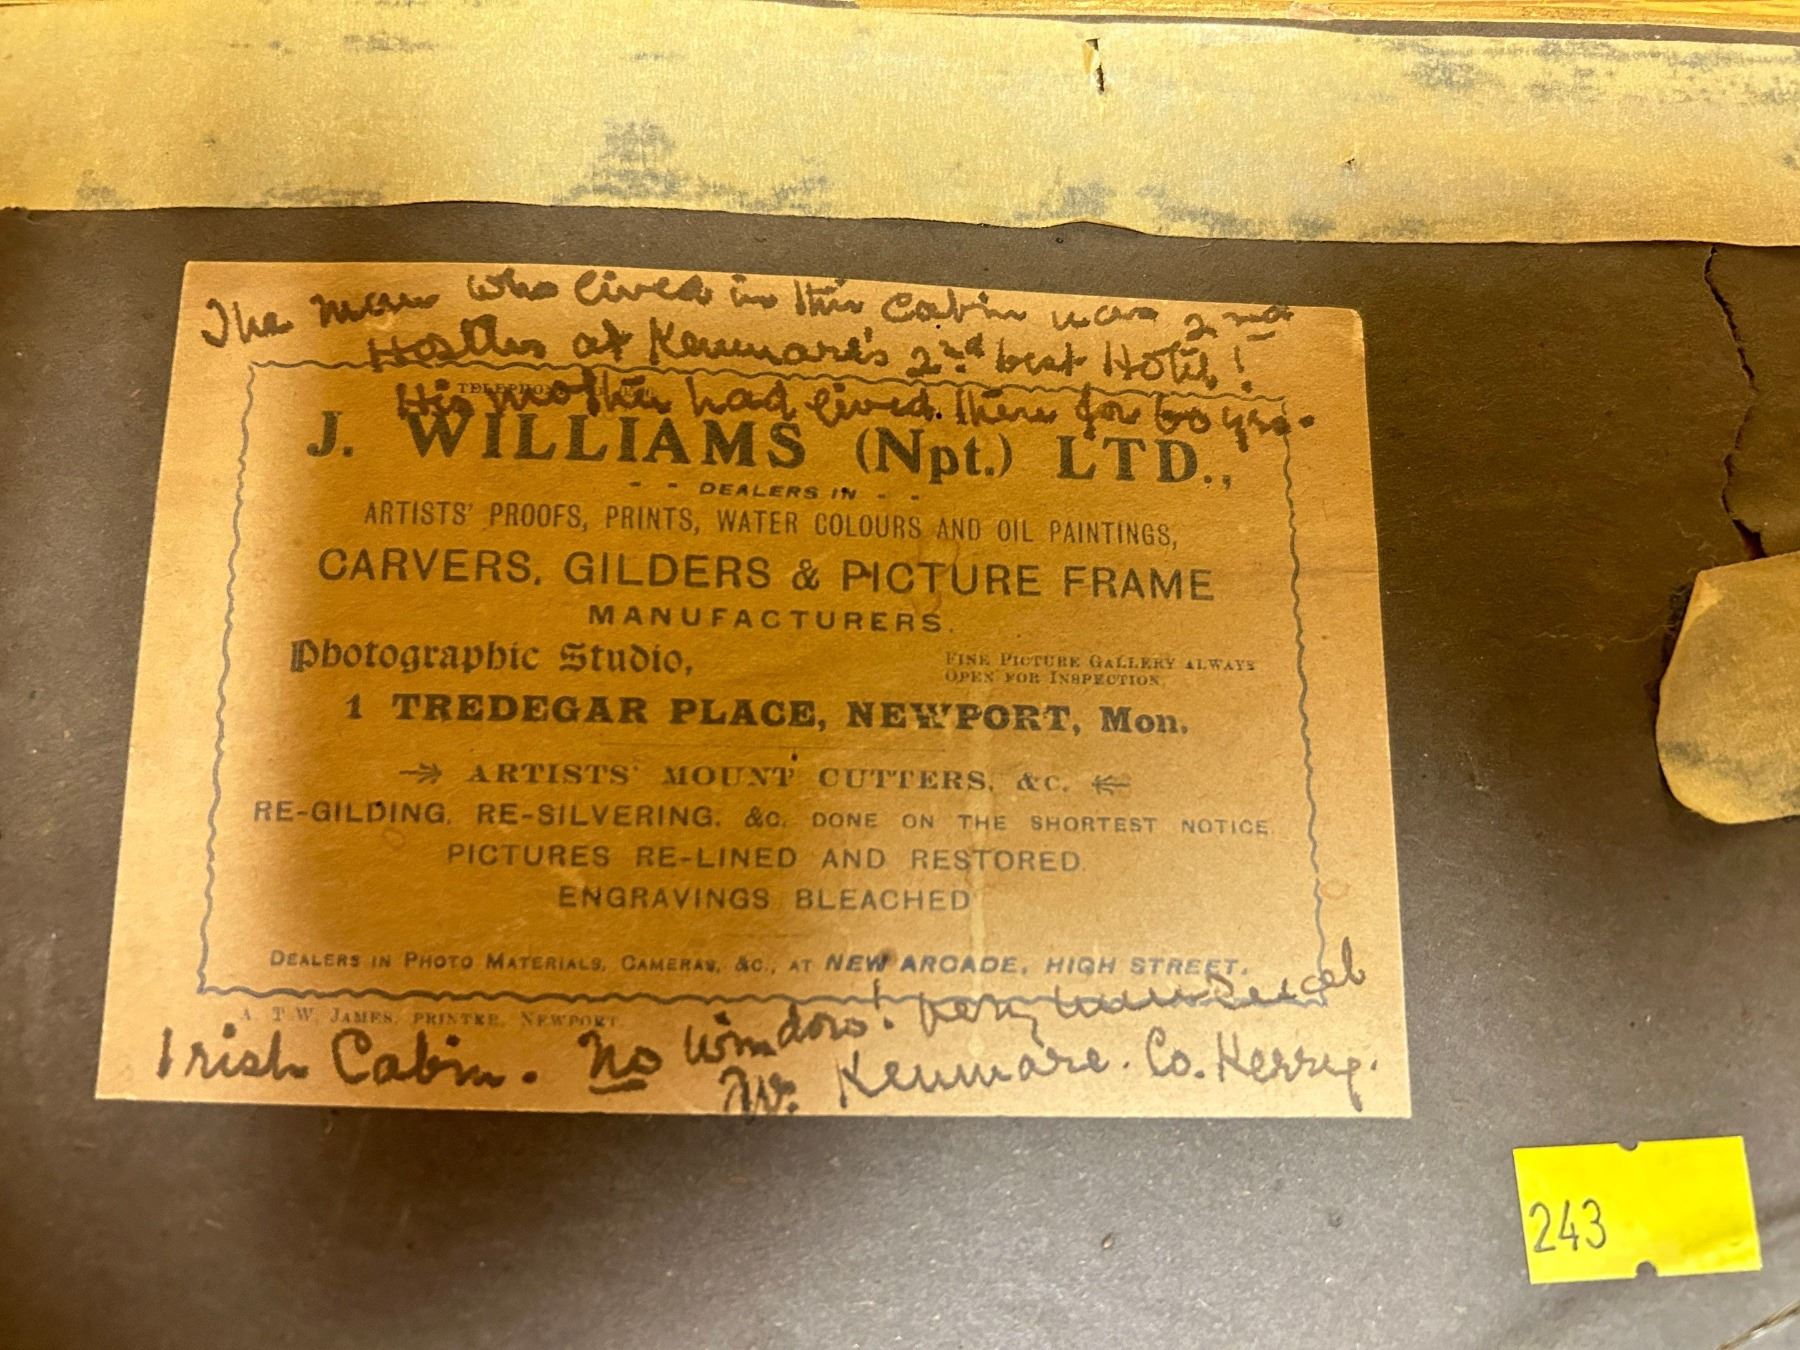 The man who lived in this cabin was 2nd
Hostler at Kenmare's 2nd best Hotel!
His mother had lived there for 60 yrs.
J. WILLIAMS (Npt.) LTD.,
- - DEALERS IN - -
ARTISTS' PROOFS, PRINTS, WATER COLOURS AND OIL PAINTINGS,
CARVERS, GILDERS & PICTURE FRAME
MANUFACTURERS.
Photographic Studio,
FINE PICTURE GALLERY ALWAYS
OPEN FOR INSPECTION.
1 TREDEGAR PLACE, NEWPORT, Mon.
ARTISTS' MOUNT CUTTERS, &C.
RE-GILDING, RE-SILVERING, &C. DONE ON THE SHORTEST NOTICE.
PICTURES RE-LINED AND RESTORED.
ENGRAVINGS BLEACHED
DEALERS IN PHOTO MATERIALS, CAMERAS, &C., AT NEW ARCADE, HIGH STREET.
A. T. W. JAMES, PRINTER, NEWPORT.
Irish Cabin. No window!
Nr. Kenmare. Co. Kerry.
243